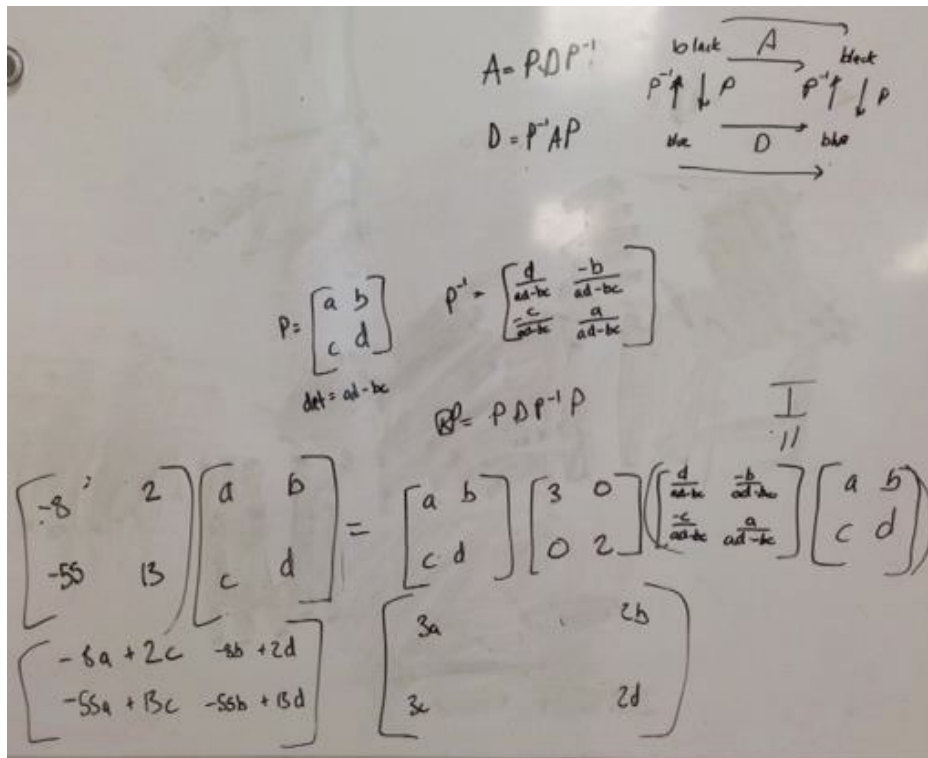 A = PDP⁻¹
black A black
P⁻¹ ↑ ↓ P P⁻¹ ↑ ↓ P
D = P⁻¹AP
blue D blue
P = [a b; c d]
P⁻¹ = [d/(ad-bc) -b/(ad-bc); -c/(ad-bc) a/(ad-bc)]
det = ad-bc
P = PDP⁻¹P
I
[-8 2; -55 13] [a b; c d] = [a b; c d] [3 0; 0 2] ([d/(ad-bc) -b/(ad-bc); -c/(ad-bc) a/(ad-bc)] [a b; c d])
[-8a + 2c -8b + 2d; -55a + 13c -55b + 13d] [3a 2b; 3c 2d]